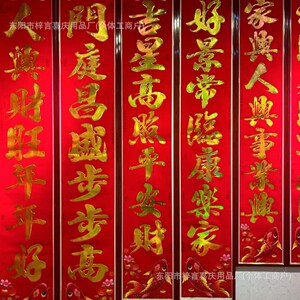 东阳市梓言喜庆用品厂(个体工商户)
家興人興事業興
好景常臨康樂家
吉星高照平安財
門庭昌盛步步高
人興財旺年年好
东阳市梓言喜庆用品厂(个体工商户)